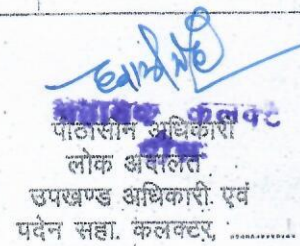 कलक्ट
पीठासीन अधिकारी
लोक अदालत
उपखण्ड अधिकारी एवं
पदेन सहा. कलक्टर, ..........